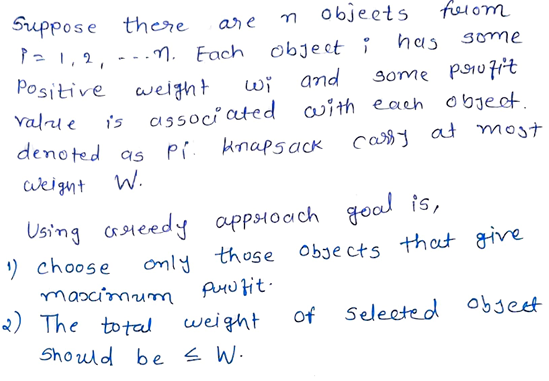 Suppose there are n objects from
i = 1, 2, ---n. Each object i has some
Positive weight wi and some profit
value is associated with each object.
denoted as Pi. Knapsack carry at most
weight W.
Using Greedy approach goal is,
1) choose only those objects that give
maximum profit.
2) The total weight of selected object
should be ≤ W.